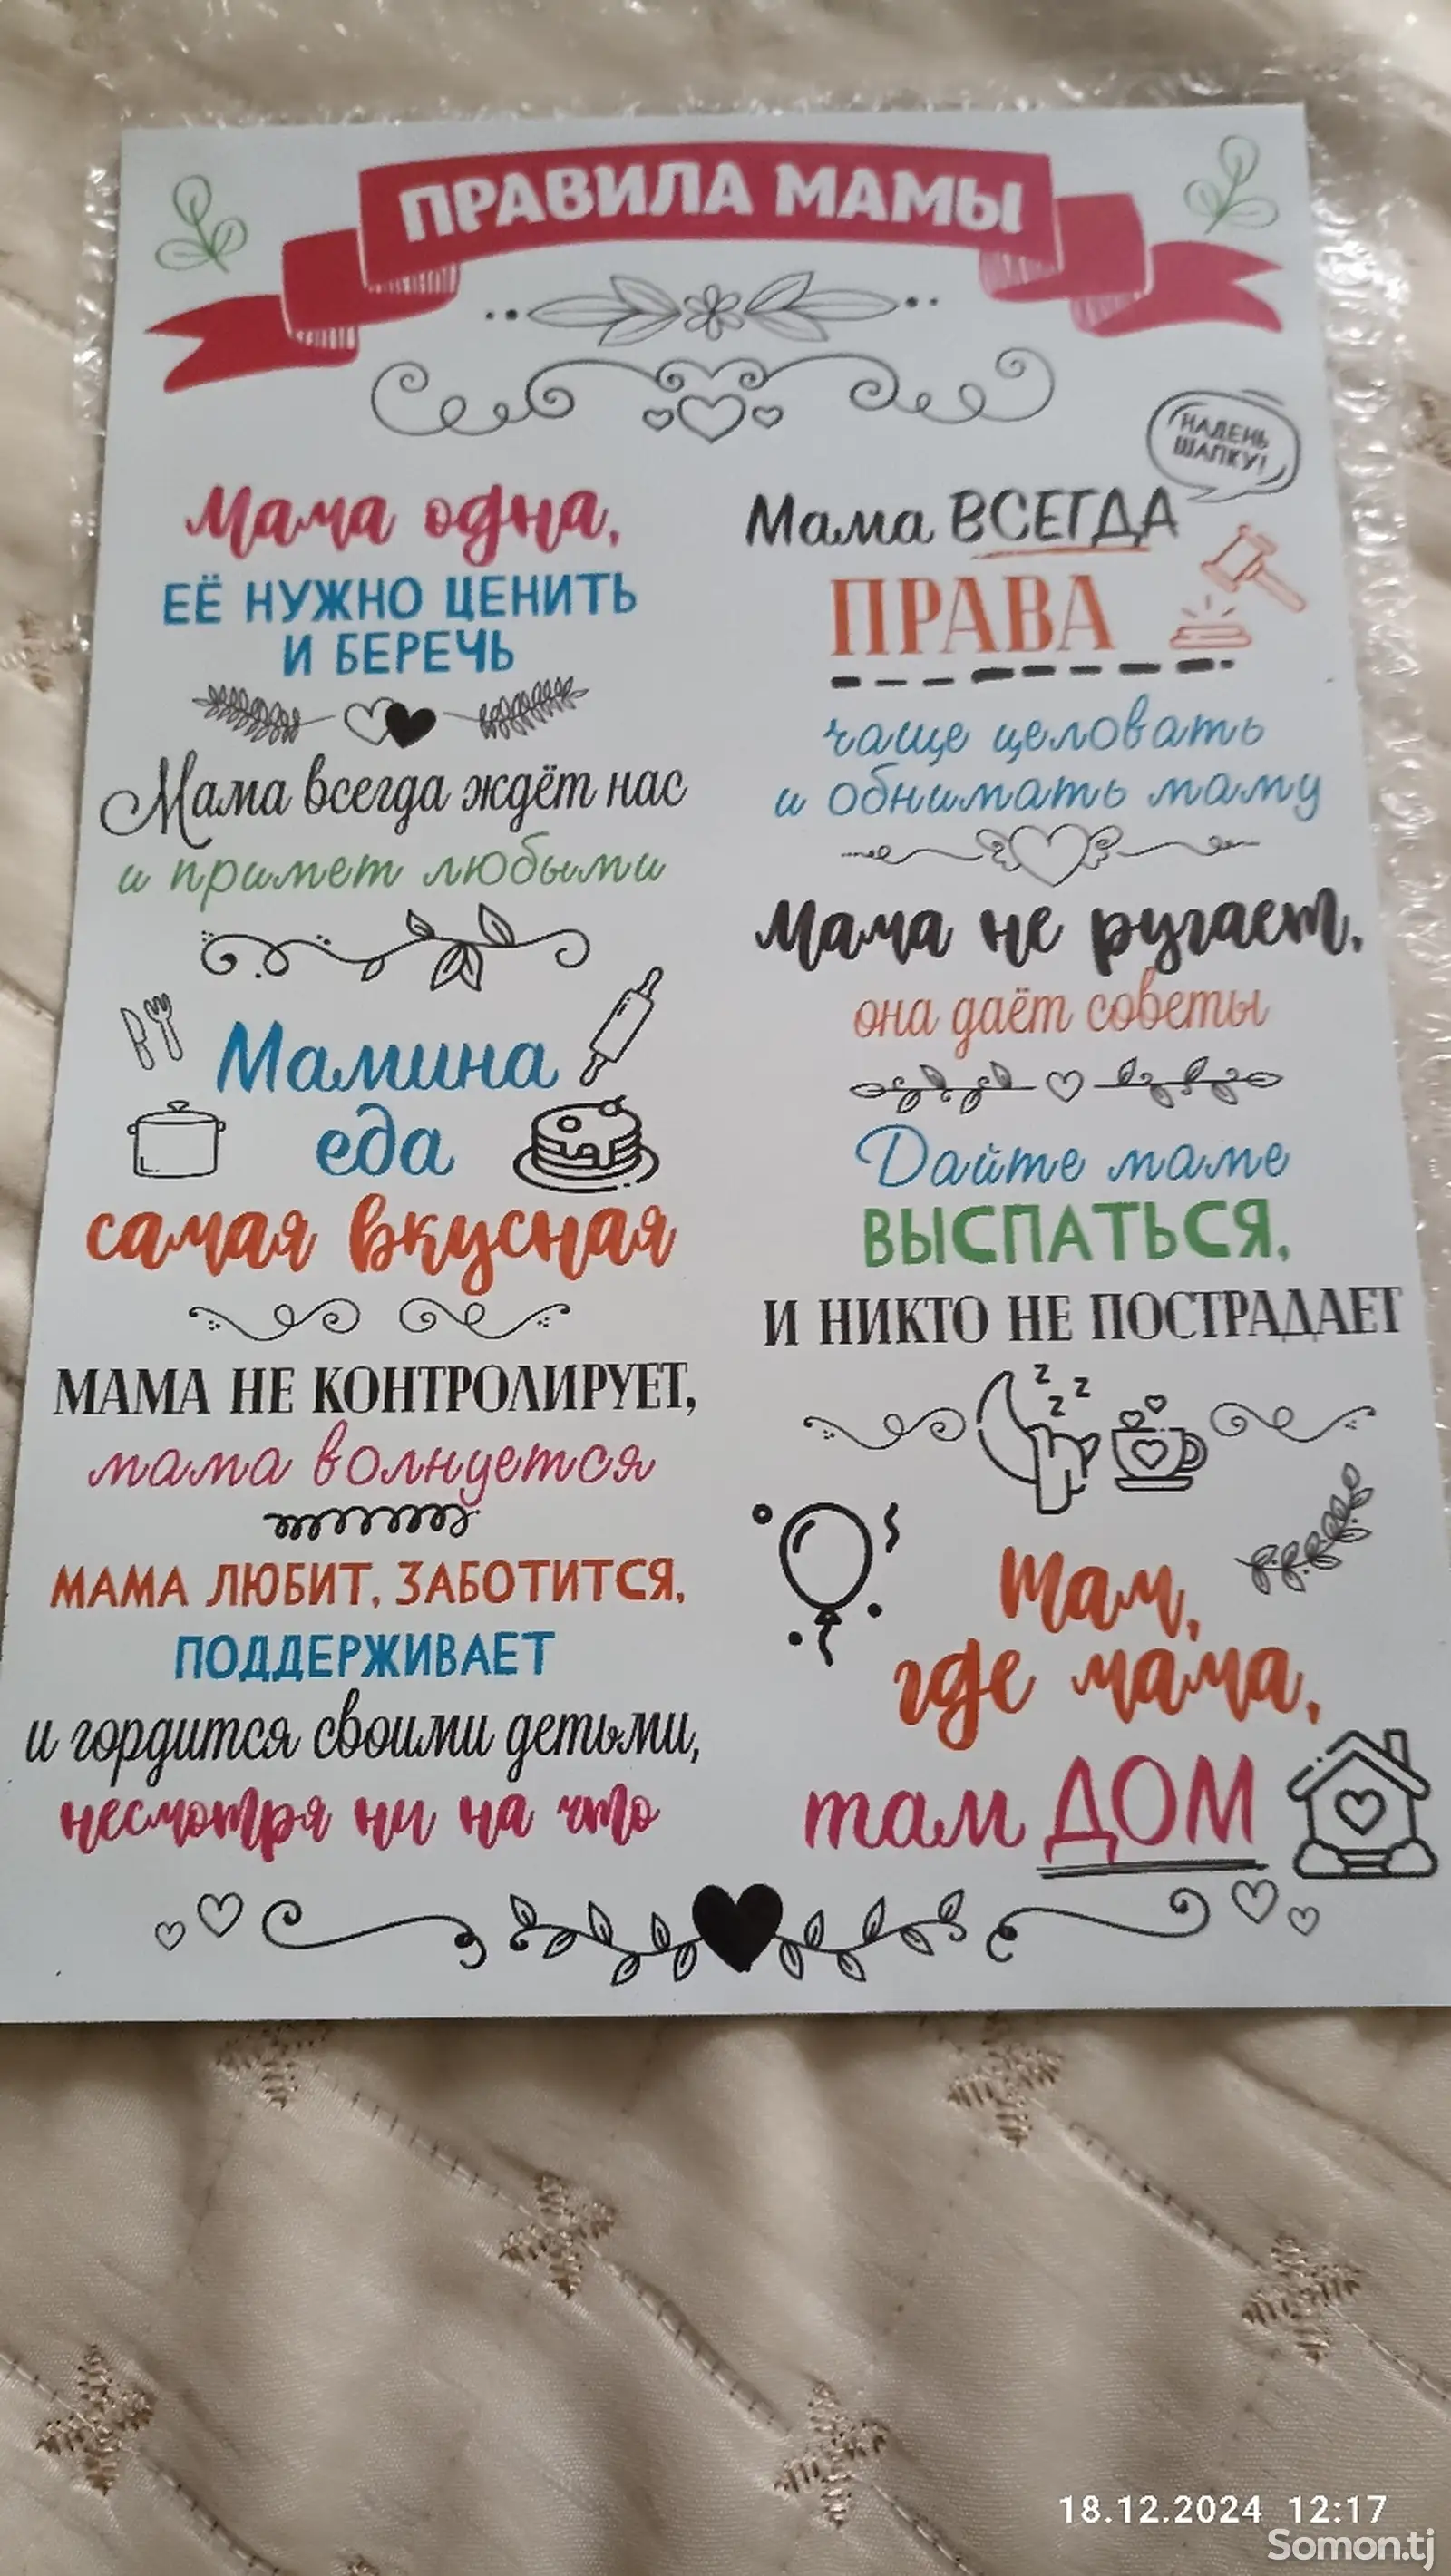 ПРАВИЛА МАМЫ
Мама одна,
ЕЁ НУЖНО ЦЕНИТЬ
И БЕРЕЧЬ
Мама всегда ждёт нас
и примет любыми
Мамина
еда
самая вкусная
МАМА НЕ КОНТРОЛИРУЕТ,
мама волнуется
МАМА ЛЮБИТ, ЗАБОТИТСЯ,
ПОДДЕРЖИВАЕТ
и гордится своими детьми,
несмотря ни на что
НАДЕНЬ
ШАПКУ!
Мама ВСЕГДА
ПРАВА
чаще целовать
и обнимать маму
Мама не ругает,
она даёт советы
Дайте маме
ВЫСПАТЬСЯ,
И НИКТО НЕ ПОСТРАДАЕТ
z z z z
Там,
где мама,
там ДОМ
18.12.2024 12:17
Somon.tj